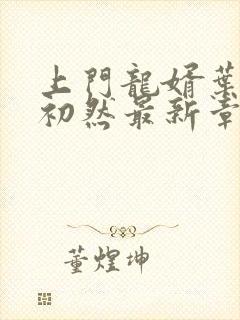 上門龍婿葉
初然最新章
董煌坤